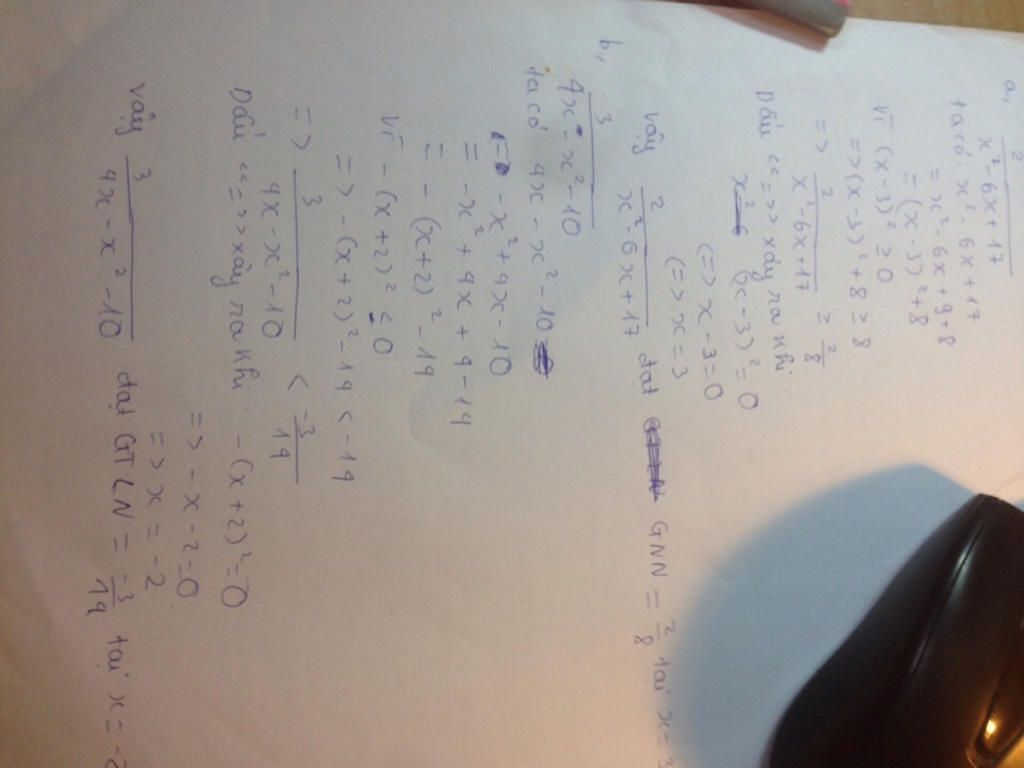 a, 2/(x² - 6x + 17)
ta có x² - 6x + 17
= x² - 6x + 9 + 8
= (x - 3)² + 8
Vì (x - 3)² ≥ 0
=> (x - 3)² + 8 ≥ 8
=> 2/(x² - 6x + 17) ≥ 2/8
Dấu "=" xảy ra khi (x - 3)² = 0
(=> x - 3 = 0
(=> x = 3
Vậy 2/(x² - 6x + 17) đạt GNN = 2/8 tại x =
b, 3/(4x - x² - 10)
ta có 4x - x² - 10
= -x² + 4x - 10
= -x² + 4x + 4 - 14
= - (x + 2)² - 14
Vì - (x + 2)² ≤ 0
=> - (x + 2)² - 14 < -14
=> 3/(4x - x² - 10) < -3/14
Dấu "=" xảy ra khi - (x + 2)² = 0
=> - x - 2 = 0
=> x = -2
Vậy 3/(4x - x² - 10) đạt GTLN = -3/14 tại x = -2